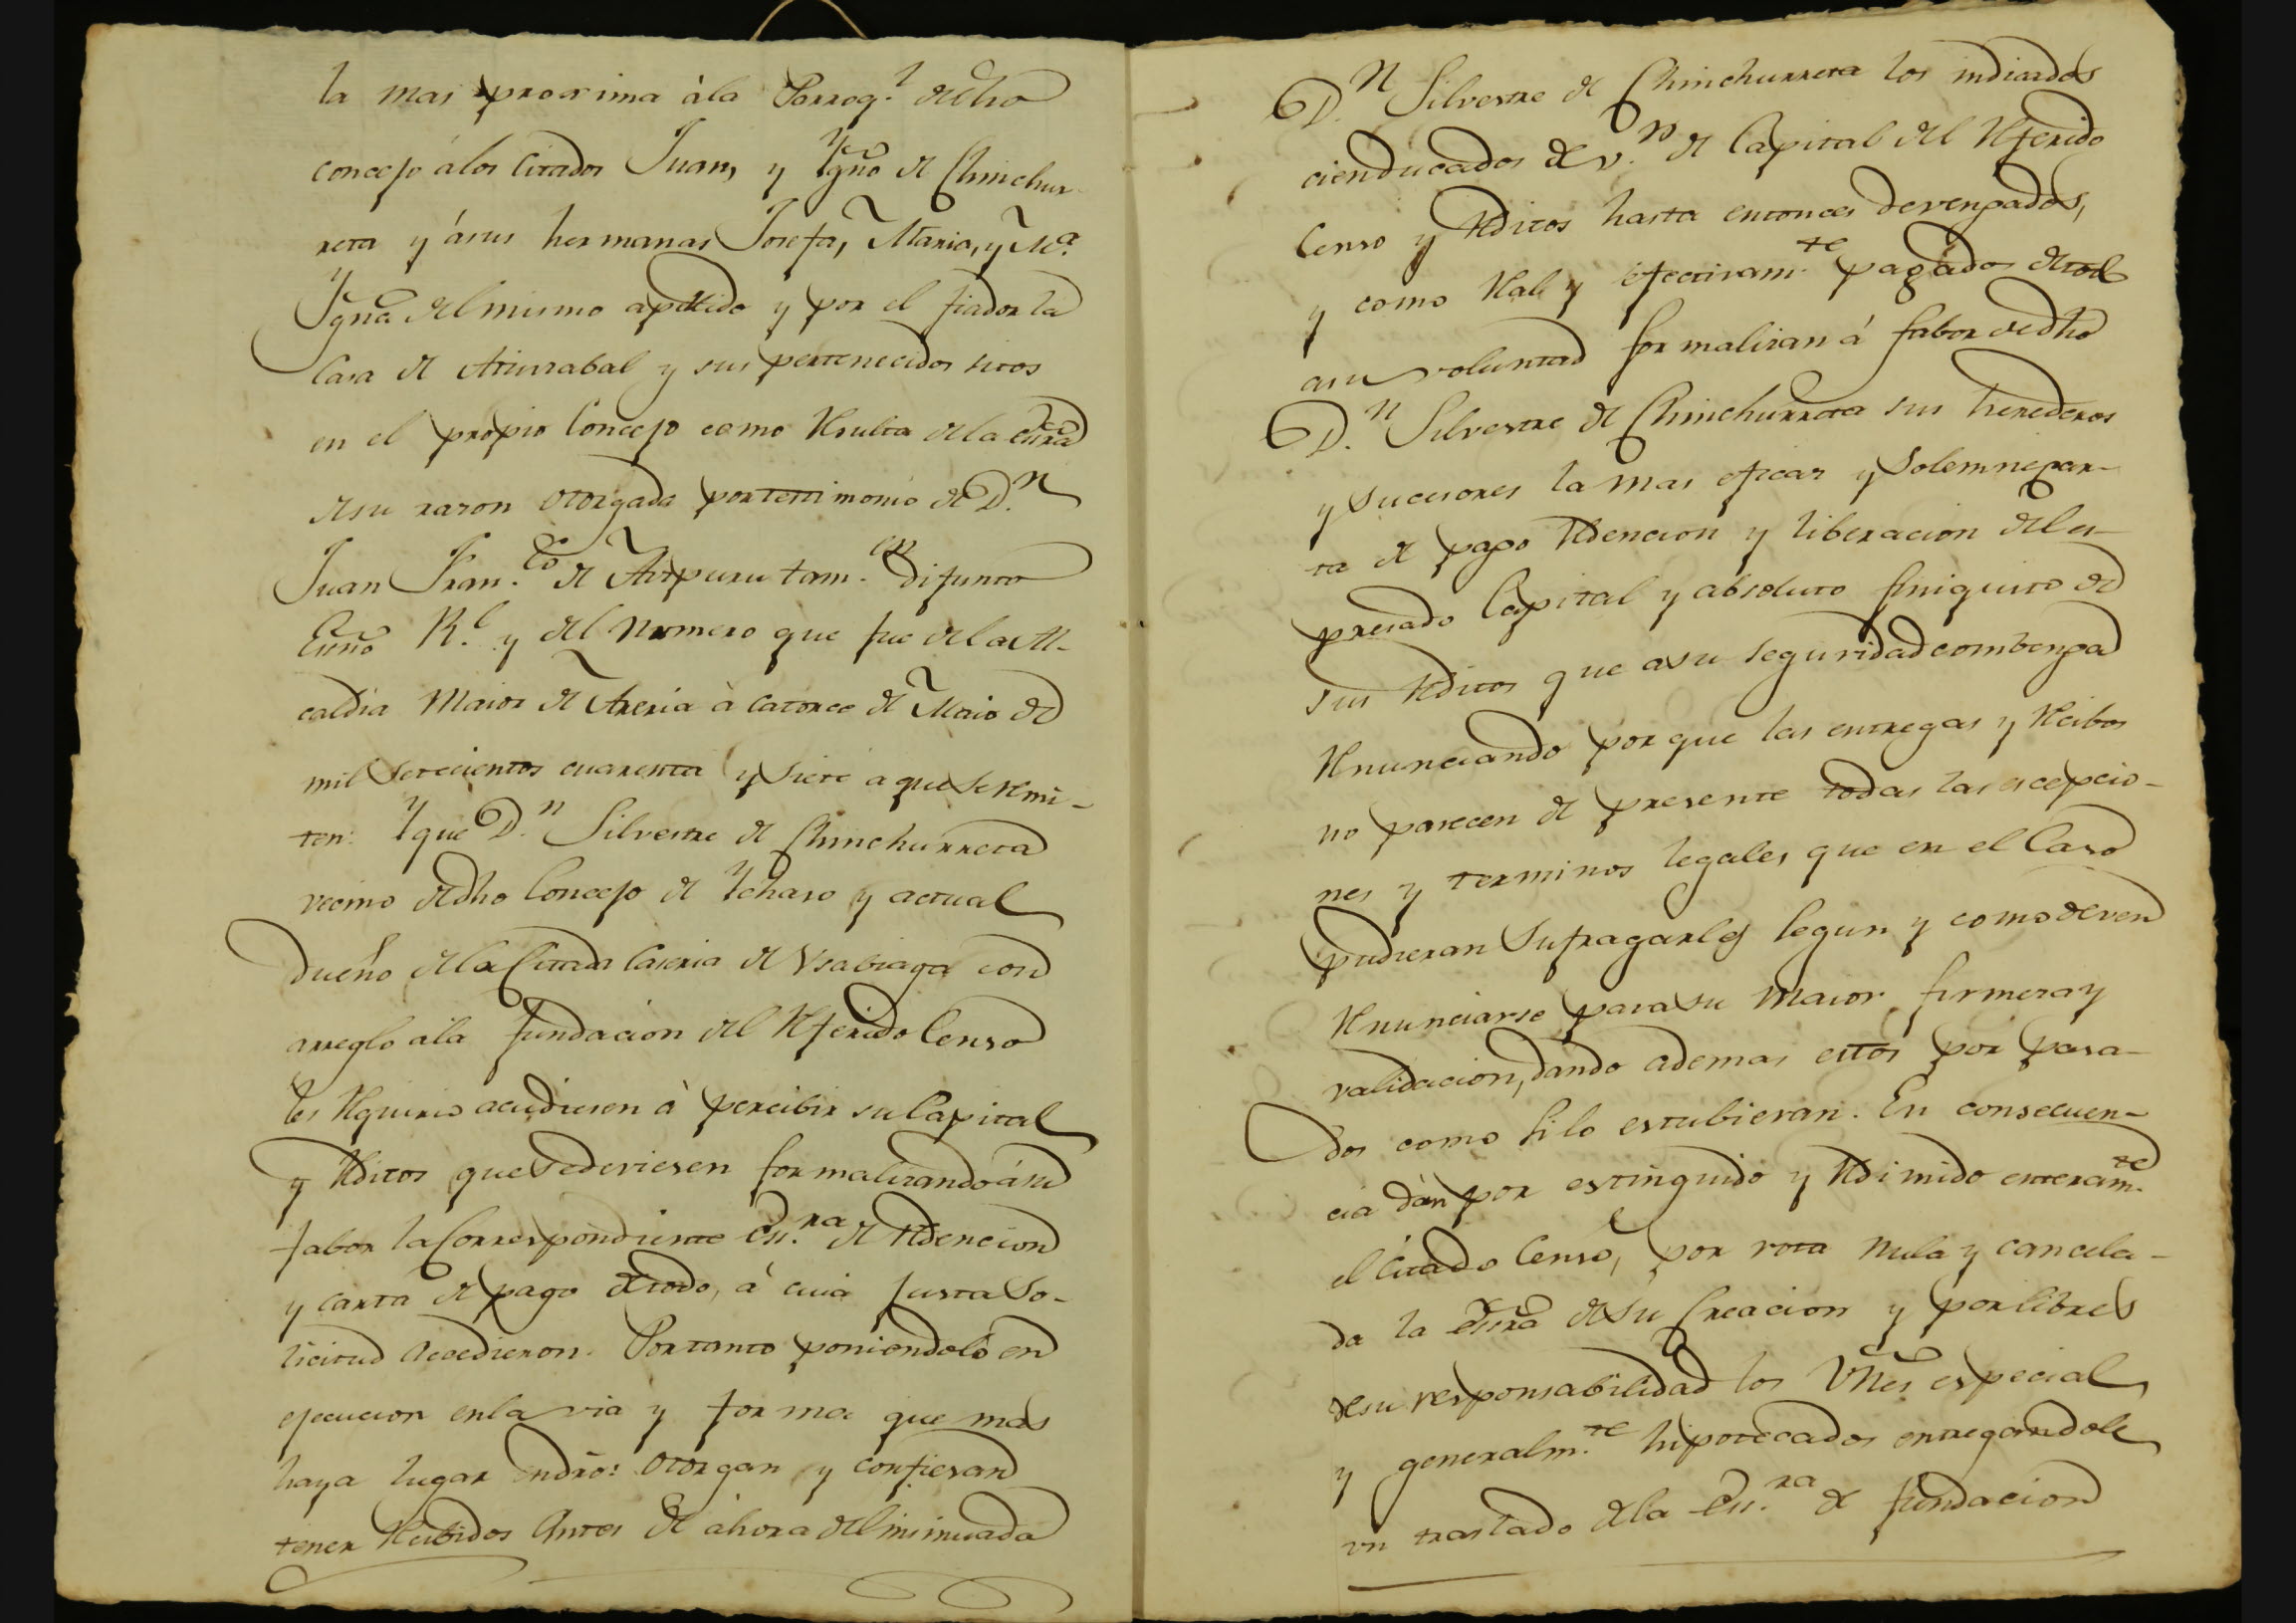 la mas proxima à la Parroq.l de dho
concejo á los citados Juan, y Ygño de Chinchur-
reta y ásus hermanas Josefa, Maria, y M.a
Ygña del mismo apellido y por el fiador la
Casa de Atiurabal y sus pertenecidos sitos
en el propio Concejo como Resulta de la essra
de su razon otorgada por testimonio de D.n
Juan Fran.co de Aizpuru tam.en difunto
Essno R.l y del Numero que fue de la Al-
caldia Maior de Areria à catorce de Maio de
mil setecientos cuarenta y siete a que se Remi-
ten: Y que D.n Silvestre de Chinchurreta
vecino de dho Concejo de Ychaso y actual
dueño de la Citada Caseria de Usabiaga con
arreglo ála fundacion del Referido Censo
les Requirio acudiesen à percibir su Capital
y Reditos que se deviesen formalizando á su
fabor la Correspondiente Ess.ra de Redencion
y carta de pago de todo, á cuia Justa So-
licitud Accedieron. Por tanto poniendolo en
ejecucion en la via y forma que mas
haya lugar en dro: otorgan y confiesan
tener Recibidos Antes de áhora del insinuado
D.n Silvestre de Chinchurreta los indicados
cien ducados de v.n de Capital del Referido
Censo y Reditos hasta entonces devengados,
y como Real y efectivam.te pagados de todo
a su voluntad formalizan á fabor de dho
D.n Silvestre de Chinchurreta sus herederos
y Sucesores la mas eficaz y Solemne car-
ta de pago Redencion y liberacion del es-
presado Capital y absoluto finiquito de
sus Reditos que a su seguridad combenga
Renunciando por que las entregas y Recibos
no parecen de presente todas las ecepcio-
nes y terminos legales que en el Caso
pudieran Sufragarles segun y como deven
Renunciarse para su Maior firmeza y
validacion, dando ademas estos por pasa-
dos como si lo estubieran. En consecuen-
cia dan por estinguido y Redimido enteram.te
el Citado Censo, por rota nula y cancela-
da la essra de su Creacion y por libres
de su responsabilidad los Vnes especial
y generalm.te hipotecados entregandole
un traslado de la Ess.ra de fundacion